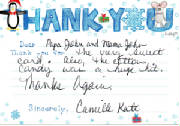 THANK YOU
Dear Papa John and Mama John
Thank you for the very sweet
card. Also, the
candy was a huge hit.
Thanks Again.
Sincerely, Camille Kate